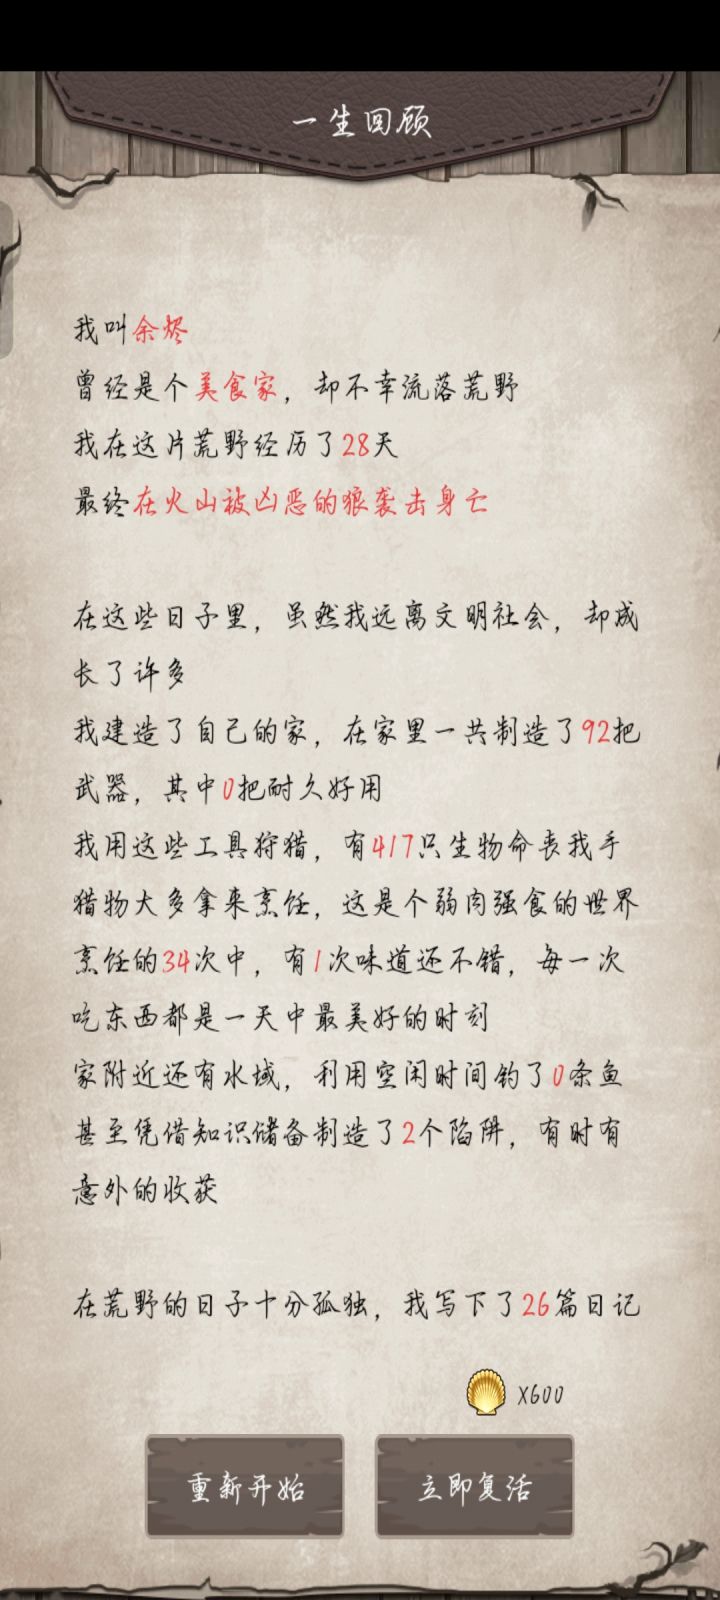 一生回顾
我叫余烬
曾经是个美食家，却不幸流落荒野
我在这片荒野经历了28天
最终在火山被凶恶的狼袭击身亡
在这些日子里，虽然我远离文明社会，却成
长了许多
我建造了自己的家，在家里一共制造了92把
武器，其中0把耐久好用
我用这些工具狩猎，有417只生物命丧我手
猎物大多拿来烹饪，这是个弱肉强食的世界
烹饪的34次中，有1次味道还不错，每一次
吃东西都是一天中最美好的时刻
家附近还有水域，利用空闲时间钓了0条鱼
甚至凭借知识储备制造了2个陷阱，有时有
意外的收获
在荒野的日子十分孤独，我写下了26篇日记
X600
重新开始
立即复活